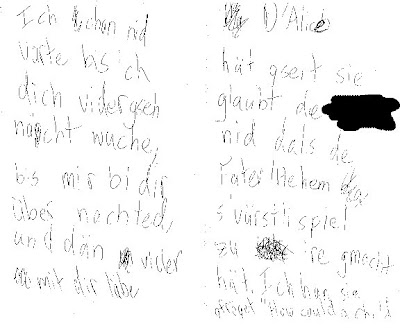 Ich chan nid
varte bis ich
dich vidergseh
nächt wuche,
bis mir bi dir
über nachted,
und dän vider
mit dir läbe
D'Alice
hät gseit sie
glaubt de
nid dals de
s'vürstlispiel
zu 're gmacht
hät. Ich han sie
gfroget "How could a child